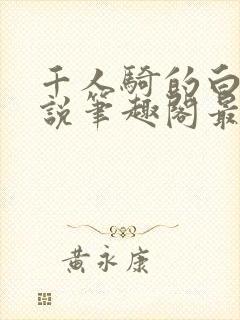 千人騎的白
說筆趣閣最
黃永康